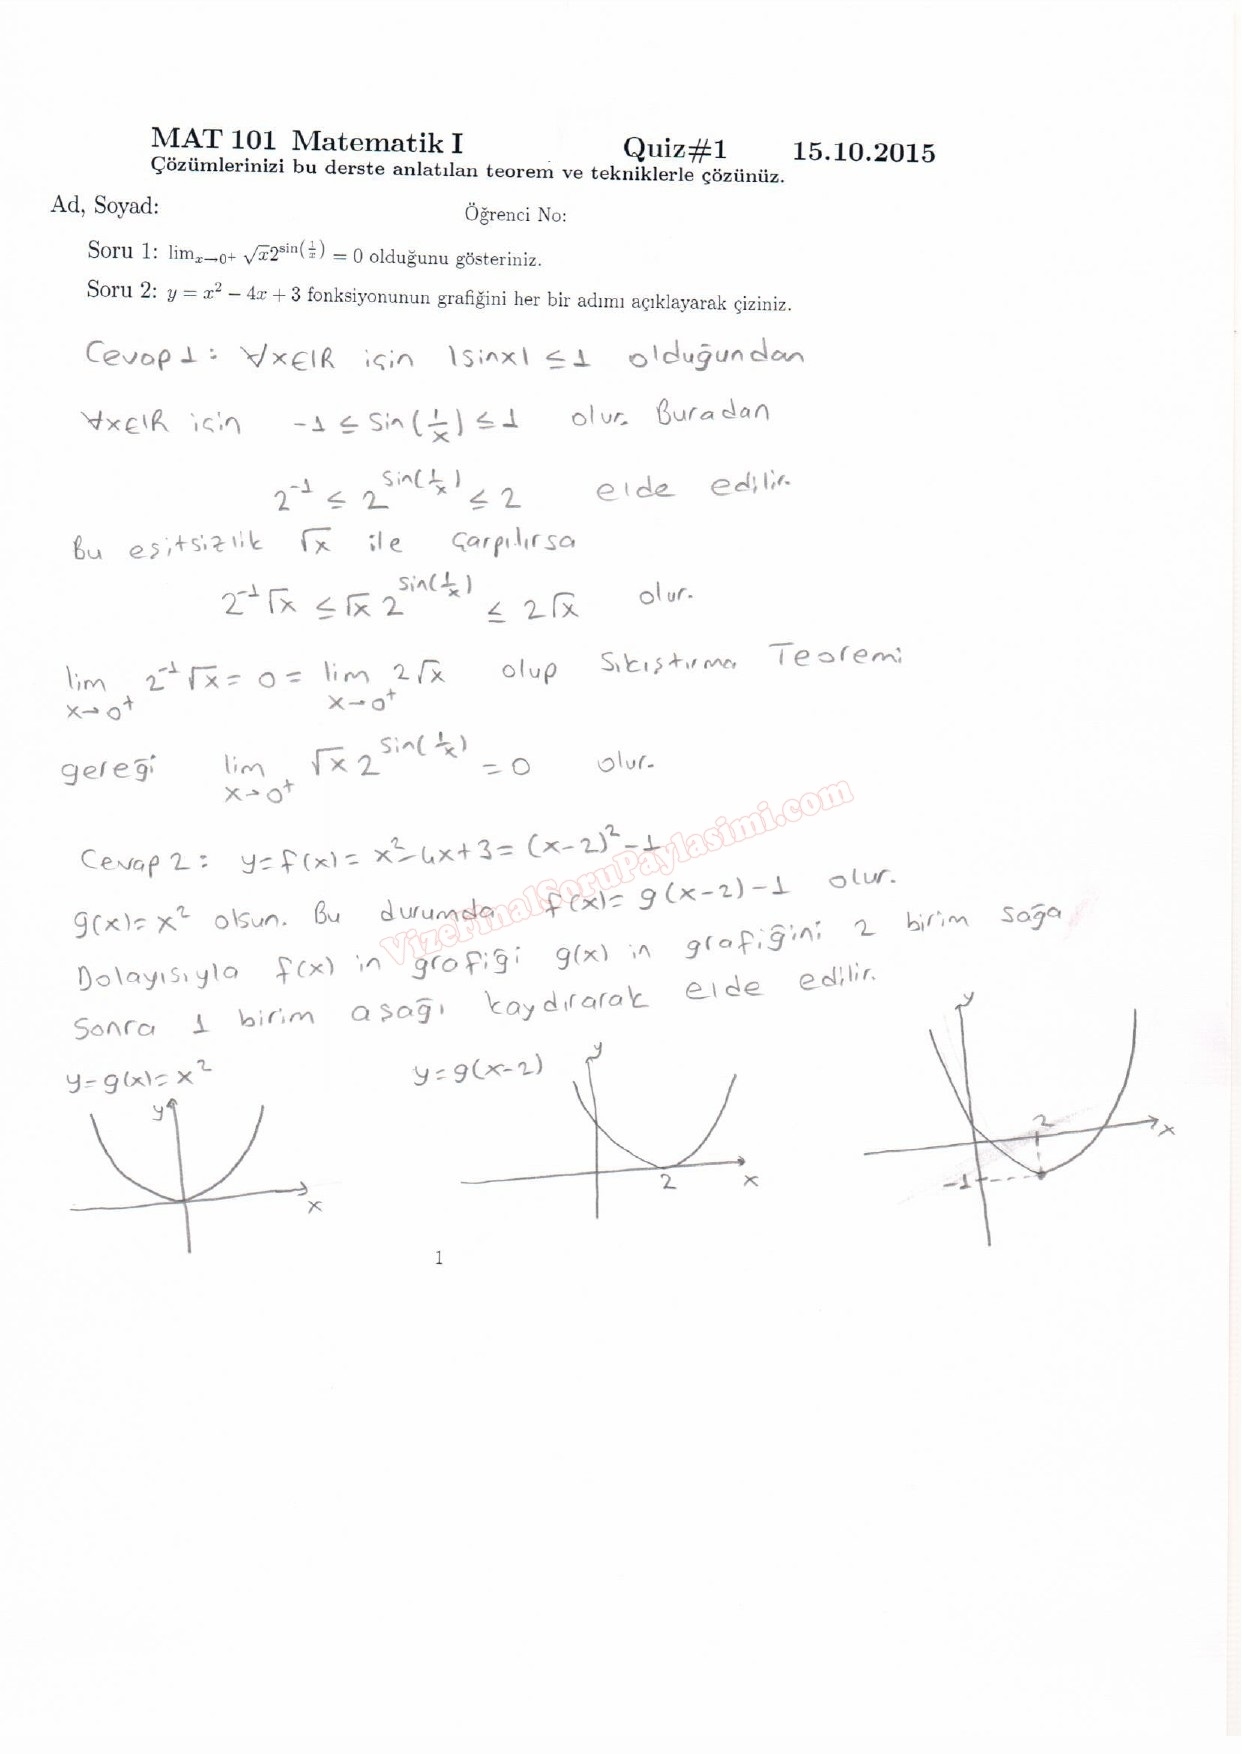 MAT 101 Matematik I Quiz#1 15.10.2015
Çözümlerinizi bu derste anlatılan teorem ve tekniklerle çözünüz.
Ad, Soyad: Öğrenci No:
Soru 1: lim_{x→0+} √x2^{sin(1/x)} = 0 olduğunu gösteriniz.
Soru 2: y = x² − 4x + 3 fonksiyonunun grafiğini her bir adımı açıklayarak çiziniz.
Cevap 1: ∀x∈IR için |sinx| ≤ 1 olduğundan
∀x∈IR için -1 ≤ Sin(1/x) ≤ 1 olur. Buradan
2^{-1} ≤ 2^{sin(1/x)} ≤ 2 elde edilir.
Bu eşitsizlik √x ile çarpılırsa
2^{-1}√x ≤ √x 2^{sin(1/x)} ≤ 2√x olur.
lim_{x→0+} 2^{-1}√x = 0 = lim_{x→0+} 2√x olup Sıkıştırma Teoremi
gereği lim_{x→0+} √x 2^{sin(1/x)} = 0 olur.
Cevap 2: y=f(x)= x²-4x+3= (x-2)²-1
g(x)= x² olsun. Bu durumda f(x)= g(x-2)-1 olur.
Dolayısıyla f(x) in grafiği g(x) in grafiğini 2 birim sağa
Sonra 1 birim aşağı kaydırarak elde edilir.
y=g(x)=x² y=g(x-2)
y x
y 2 x
y 2 x -1
1
VizeFinalSoruPaylasimi.com